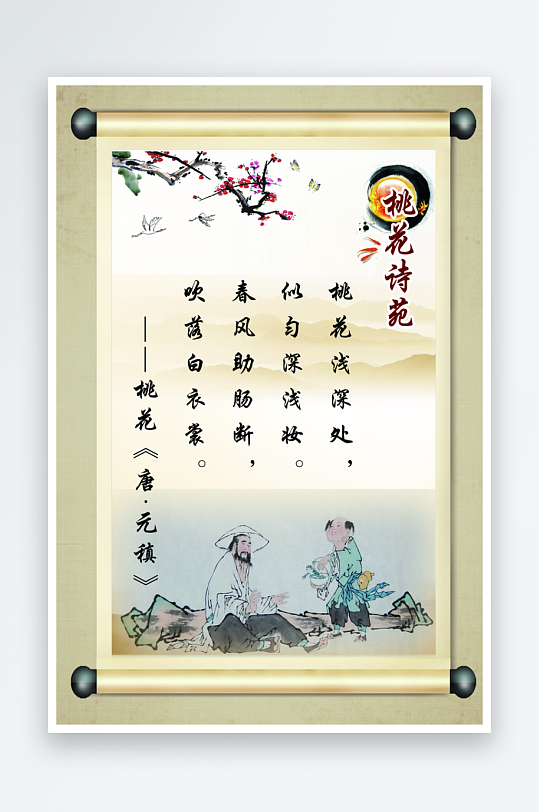 桃花诗苑
桃花浅深处，
似匀深浅妆。
春风助肠断，
吹落白衣裳。
——桃花《唐·元稹》